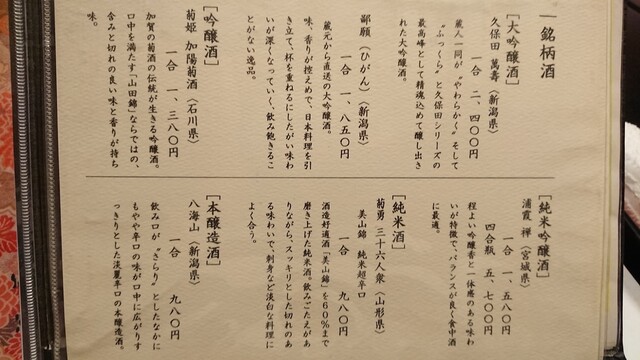 銘柄酒
［大吟醸酒］
久保田 萬壽（新潟県）
一合 二、四〇〇円
蔵人一同が〝やわらかく〟そして
〝ふっくら〟と久保田シリーズの
最高峰として精魂込めて醸し出さ
れた大吟醸酒。
鄙願（ひがん）（新潟県）
一合 一、八五〇円
蔵元から直送の大吟醸酒。
味、香りが控えめで、日本料理を引
き立て、杯を重ねるにしたがい味わ
いが深くなっていく、飲み飽きるこ
とがない逸品。
［吟醸酒］
菊姫 加陽菊酒（石川県）
一合 一、三八〇円
加賀の菊酒の伝統が生きる吟醸酒。
口中を満たす「山田錦」ならではの、
含みと切れの良い味と香りが持ち
味。
［純米吟醸酒］
浦霞 禅（宮城県）
一合 一、五八〇円
四合瓶 五、七〇〇円
程よい吟醸香と一体感のある味わ
いが特徴で、バランスが良く食中酒
に最適。
［純米酒］
菊勇 三十六人衆（山形県）
美山錦 純米超辛口
一合 九八〇円
酒造好適酒「美山錦」を60%まで
磨き上げた純米酒。飲みごたえがあ
りながら、スッキリとした切れのあ
る味わいで、刺身など淡白な料理に
よく合う。
［本醸造酒］
八海山（新潟県）
一合 九八〇円
飲み口が〝さらり〟としたなかに
もやや辛口の味が口中に広がりす
っきりとした淡麗辛口の本醸造酒。